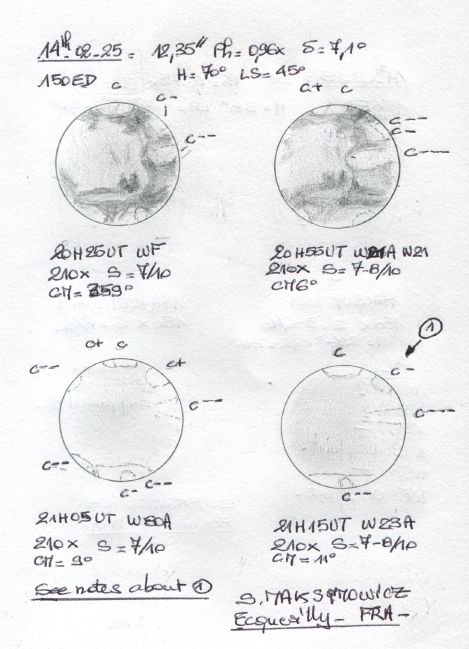 14th-02-25 = 12,35" Ph = 0,96x δ = 7,1°
150ED H = 70° LS = 45°
C C- i C--
C+ C C-- C- C---
20H25UT WF
210x S = 7/10
CM = 359°
20H55UT W21A W21
210x S = 7-8/10
CM 6°
1
C-- C+ C C+ C-- C-- C- C--
C C- C--- C--
21H05UT W80A
210x S = 7/10
CM = 9°
21H15UT W23A
210x S = 7-8/10
CM = 11°
See notes about 1
S. MAKSYMOWICZ
Ecquevilly - FRA -